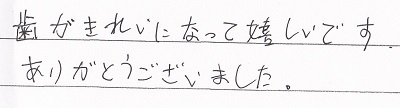 歯がきれいになって嬉しいです.
ありがとうございました。